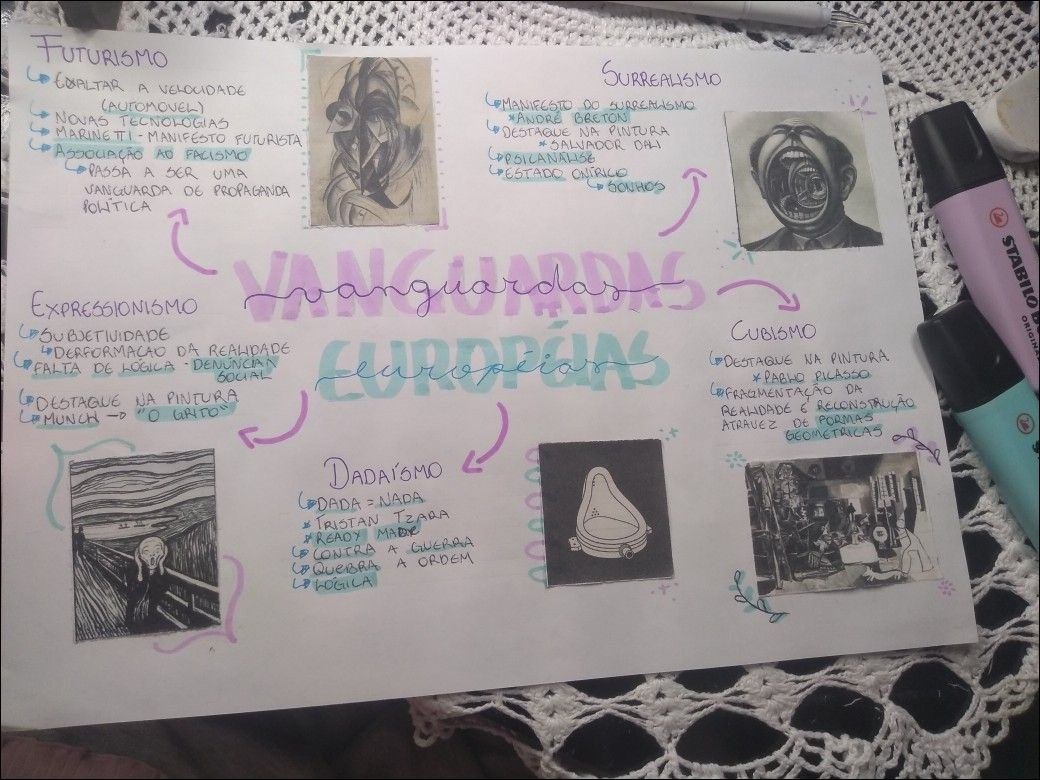 FUTURISMO
EXALTAR A VELOCIDADE
(AUTOMOVEL)
NOVAS TECNOLOGIAS
MARINETTI - MANIFESTO FUTURISTA
ASSOCIAÇÃO AO FACISMO
PASSA A SER UMA
VANGUARDA DE PROPAGANDA
POLÍTICA
SURREALISMO
MANIFESTO DO SURREALISMO
*ANDRÉ BRETON
DESTAQUE NA PINTURA
*SALVADOR DALI
PSICANÁLISE
ESTADO ONÍRICO
SONHOS
VANGUARDAS
vanguardas
EUROPÉIAS
européias
EXPRESSIONISMO
SUBJETIVIDADE
DERFORMAÇÃO DA REALIDADE
FALTA DE LÓGICA - DENÚNCIAN
SOCIAL
DESTAQUE NA PINTURA
MUNCH → "O GRITO"
CUBISMO
DESTAQUE NA PINTURA
*PABLO PICASSO
FRAGMENTAÇÃO DA
REALIDADE E RECONSTRUÇÃO
ATRAVEZ DE FORMAS
GEOMÉTRICAS
DADAÍSMO
DADA = NADA
*TRISTAN TZARA
*READY MADE
CONTRA A GUERRA
QUEBRA A ORDEM
LÓGICA
STABILO BO
ORIGINAL